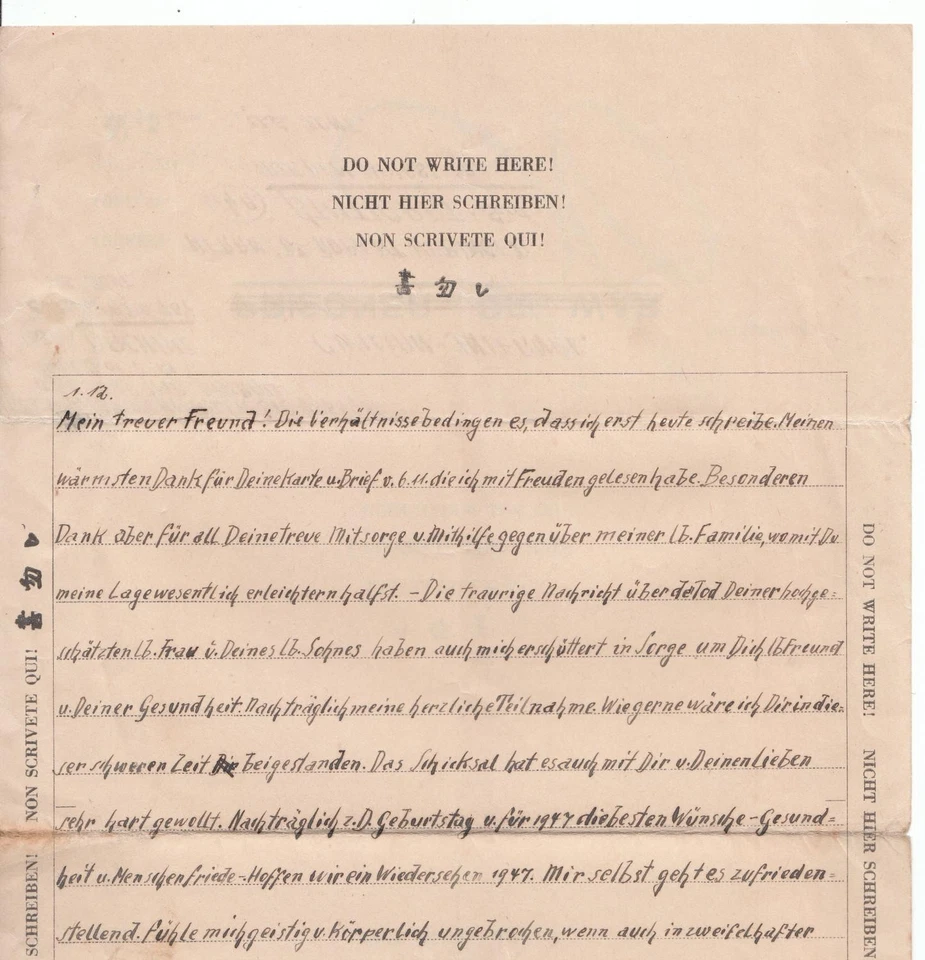 DO NOT WRITE HERE!
NICHT HIER SCHREIBEN!
NON SCRIVETE QUI!
書 勿 レ
1.12.
Mein treuer Freund! Die Verhältnisse bedingen es, dass ich erst heute schreibe. Meinen
wärmsten Dank für Deine Karte u. Brief v. 6.11. die ich mit Freuden gelesen habe. Besonderen
Dank aber für all Deine treue Mitsorge u. Mithilfe gegenüber meiner lb. Familie, womit Du
meine Lage wesentlich erleichtern halfst. – Die traurige Nachricht über de Tod Deiner hochge=
schätzten lb. Frau u. Deines lb. Sohnes haben auch mich erschüttert in Sorge um Dich lb Freund
u. Deiner Gesundheit. Nachträglich meine herzliche Teilnahme. Wie gerne wäre ich Dir in die=
ser schweren Zeit beigestanden. Das Schicksal hat es auch mit Dir u. Deinen lieben
sehr hart gewollt. Nachträglich z. D. Geburtstag u. für 1947 die besten Wünsche – Gesund=
heit u. Menschenfriede – Hoffen wir ein Wiedersehen 1947. Mir selbst geht es zufrieden=
stellend. Fühle mich geistig u. Körperlich ungebrochen, wenn auch in zweifelhafter
SCHREIBEN! NON SCRIVETE QUI! 書 勿 レ
DO NOT WRITE HERE! NICHT HIER SCHREIBEN